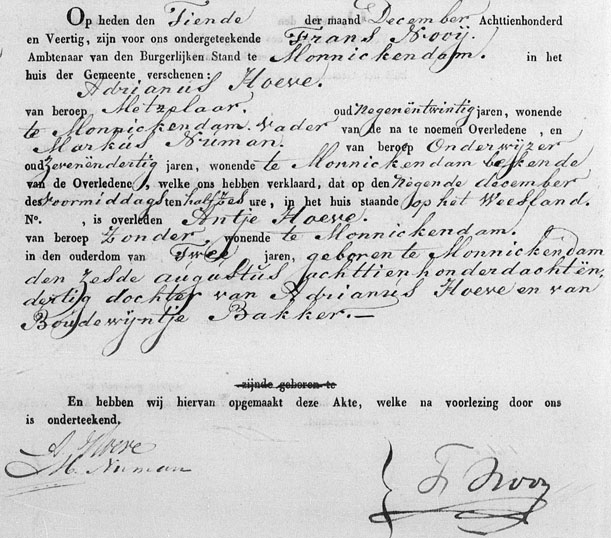 Op heden den Tiende der maand December Achttienhonderd
en Veertig, zijn voor ons ondergeteekende Frans Nooij.
Ambtenaar van den Burgerlijken Stand te Monnickendam. in het
huis der Gemeente verschenen:
Adrianus Hoeve.
van beroep Metzelaar. oud Negenëntwintig jaren, wonende
te Monnickendam. Vader van de na te noemen Overledene, en
Markus Numan. van beroep Onderwijzer
oud Zevenëndertig jaren, wonende te Monnickendam bekende
van de Overledene, welke ons hebben verklaard, dat op den Negende december
des voormiddags ten half zes ure, in het huis staande op het Weesland.
No. , is overleden Antje Hoeve.
van beroep Zonder, wonende te Monnickendam.
in den ouderdom van Twee jaren, geboren te Monnickendam
den Zesde augustus achttienhonderdachtën,
dertig dochter van Adrianus Hoeve en van
Boudewijntje Bakker.—
zijnde geboren te
En hebben wij hiervan opgemaakt deze Akte, welke na voorlezing door ons
is onderteekend.
A. Hoeve
M. Numan
F Nooij